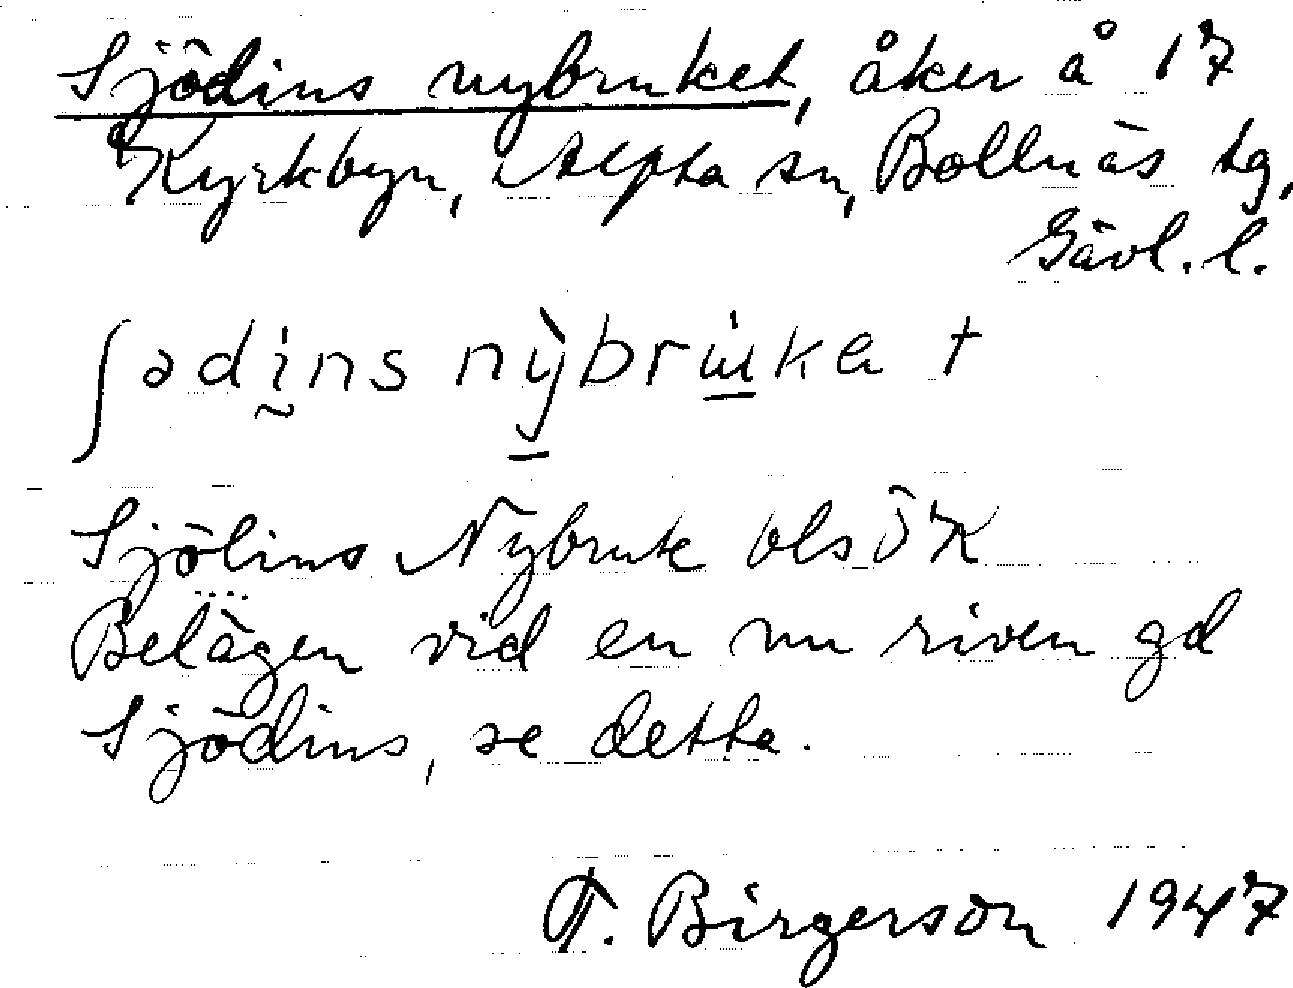 Sjödins nybruket, åker å 17
Kyrkbyn, Alfta sn, Bollnäs tg,
Gävl. l.
ʃədḭns nỳ̠bru̠̇kə t
Sjölins Nybruk bls ÖK
Belägen vid en nu riven gd
Sjödins, se detta.
F. Birgerson 1947